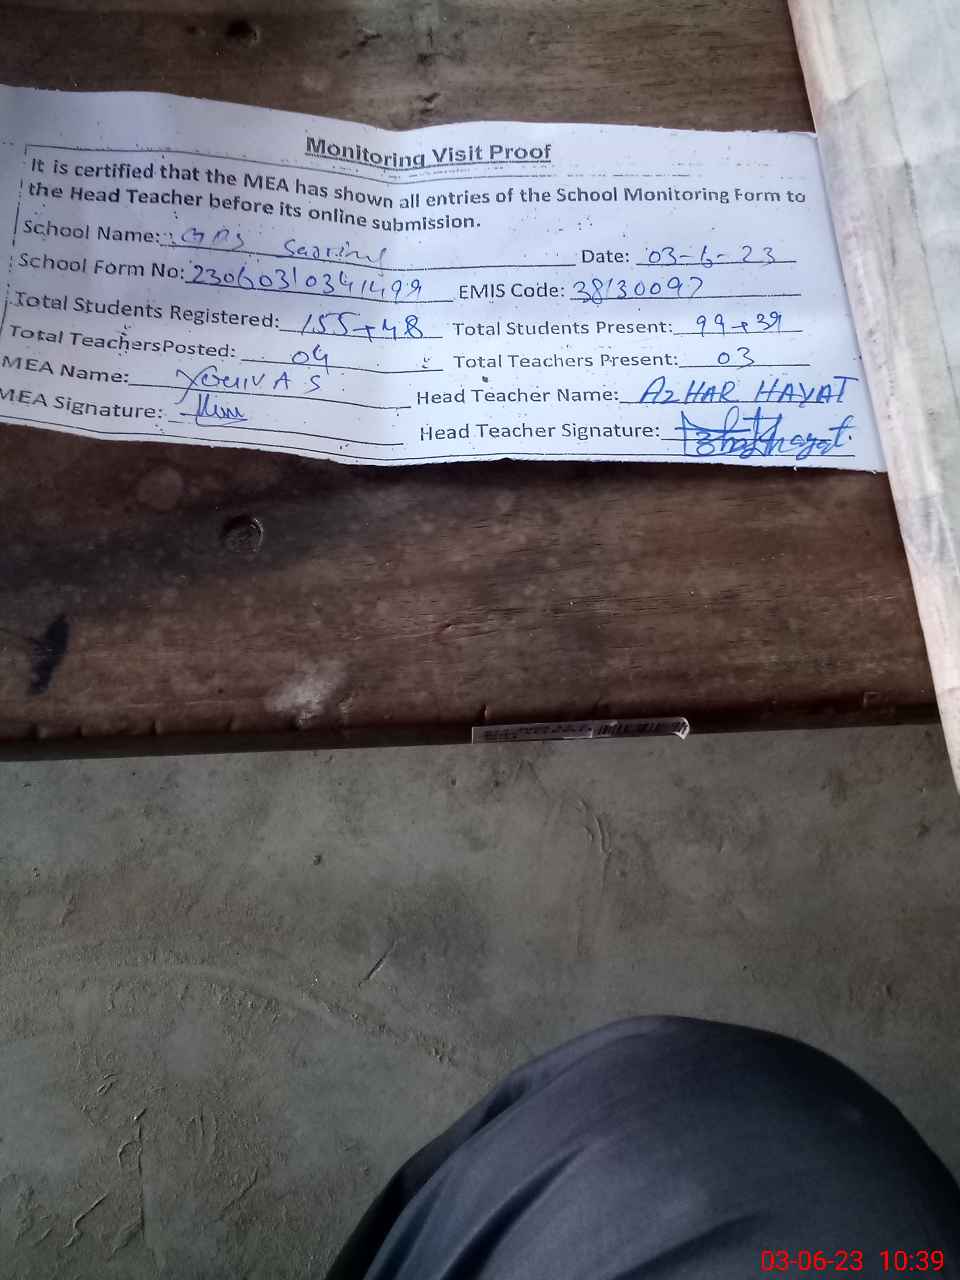 Monitoring Visit Proof
It is certified that the MEA has shown all entries of the School Monitoring Form to
the Head Teacher before its online submission.
School Name: GPS Date: 03-6-23
School Form No: 23060310341499 EMIS Code: 38130097
Total Students Registered: 155+48 Total Students Present: 99+39
Total TeachersPosted: 04 Total Teachers Present: 03
MEA Name: Head Teacher Name: AZHAR HAYAT
MEA Signature: Head Teacher Signature:
03-06-23 10:39